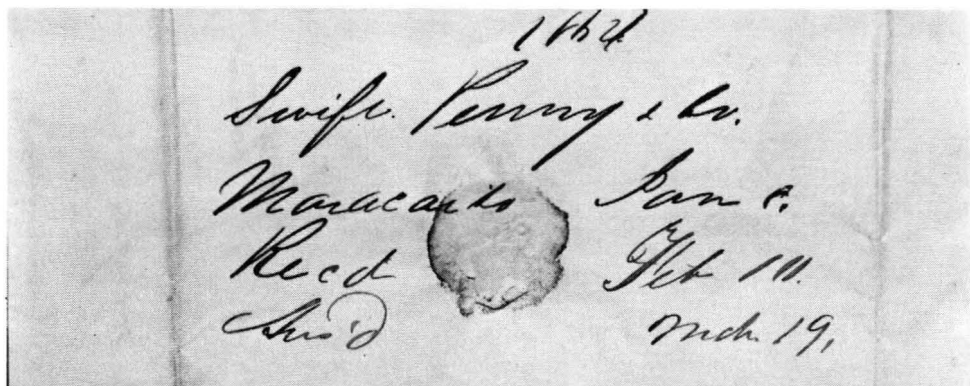 1864
Swift. Penny & Co.
Maracaibo Jan
Recd Feb
Ans'd Mch 19,